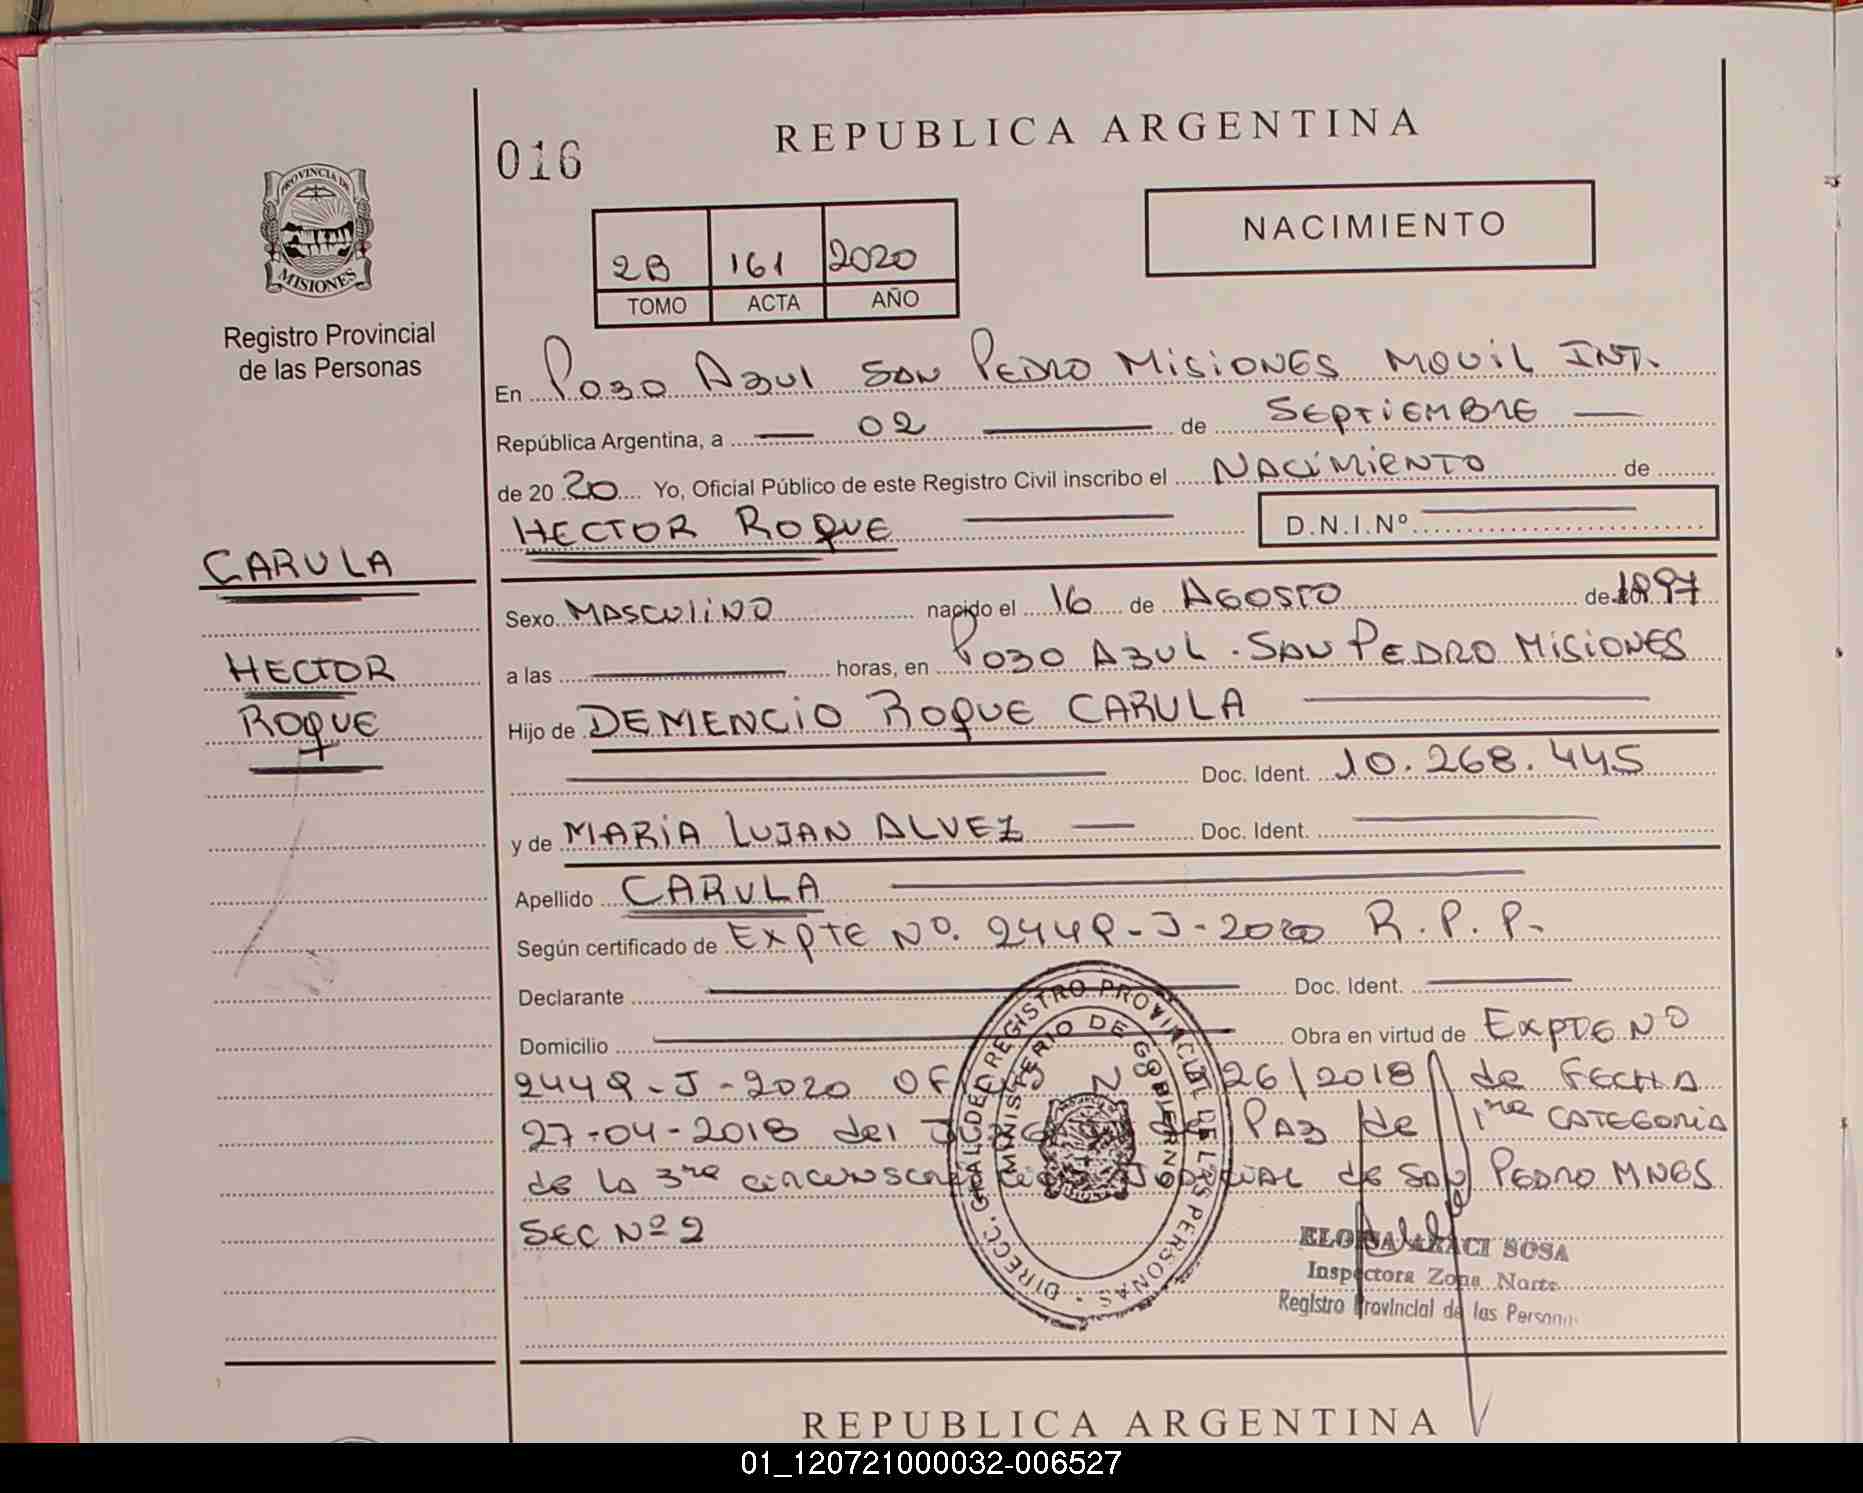 REPUBLICA ARGENTINA
016
NACIMIENTO
PROVINCIA DE
MISIONES
Registro Provincial
de las Personas
2B 161 2020
TOMO ACTA AÑO
En Pozo Azul San Pedro Misiones Movil Int.
República Argentina, a 02 de Septiembre
de 20 20 Yo, Oficial Público de este Registro Civil inscribo el Nacimiento de
HECTOR ROQUE D.N.I.Nº
CARULA
HECTOR
ROQUE
Sexo Masculino nacido el 16 de Agosto de 1997
a las horas, en Pozo Azul . San Pedro Misiones
Hijo de DEMENCIO ROQUE CARULA
Doc. Ident. 10.268.445
y de MARIA LUJAN ALVEZ Doc. Ident.
Apellido CARULA
Según certificado de Expte Nº. 2449-J-2020 R.P.P.
Declarante Doc. Ident.
Domicilio Obra en virtud de Expte Nº
2449-J-2020 OF Nº 26/2018 de FECHA
27-04-2018 del Juzgado de Paz de 1ra CATEGORIA
de la 3ra circunscripcion Judicial de San Pedro Mnes
Sec Nº 2
DIRECC. GRAL. DEL REGISTRO PROVINCIAL DE LAS PERSONAS
MINISTERIO DE GOBIERNO
ELOISA ARACI SOSA
Inspectora Zona Norte
Registro Provincial de las Personas
REPUBLICA ARGENTINA
01_120721000032-006527